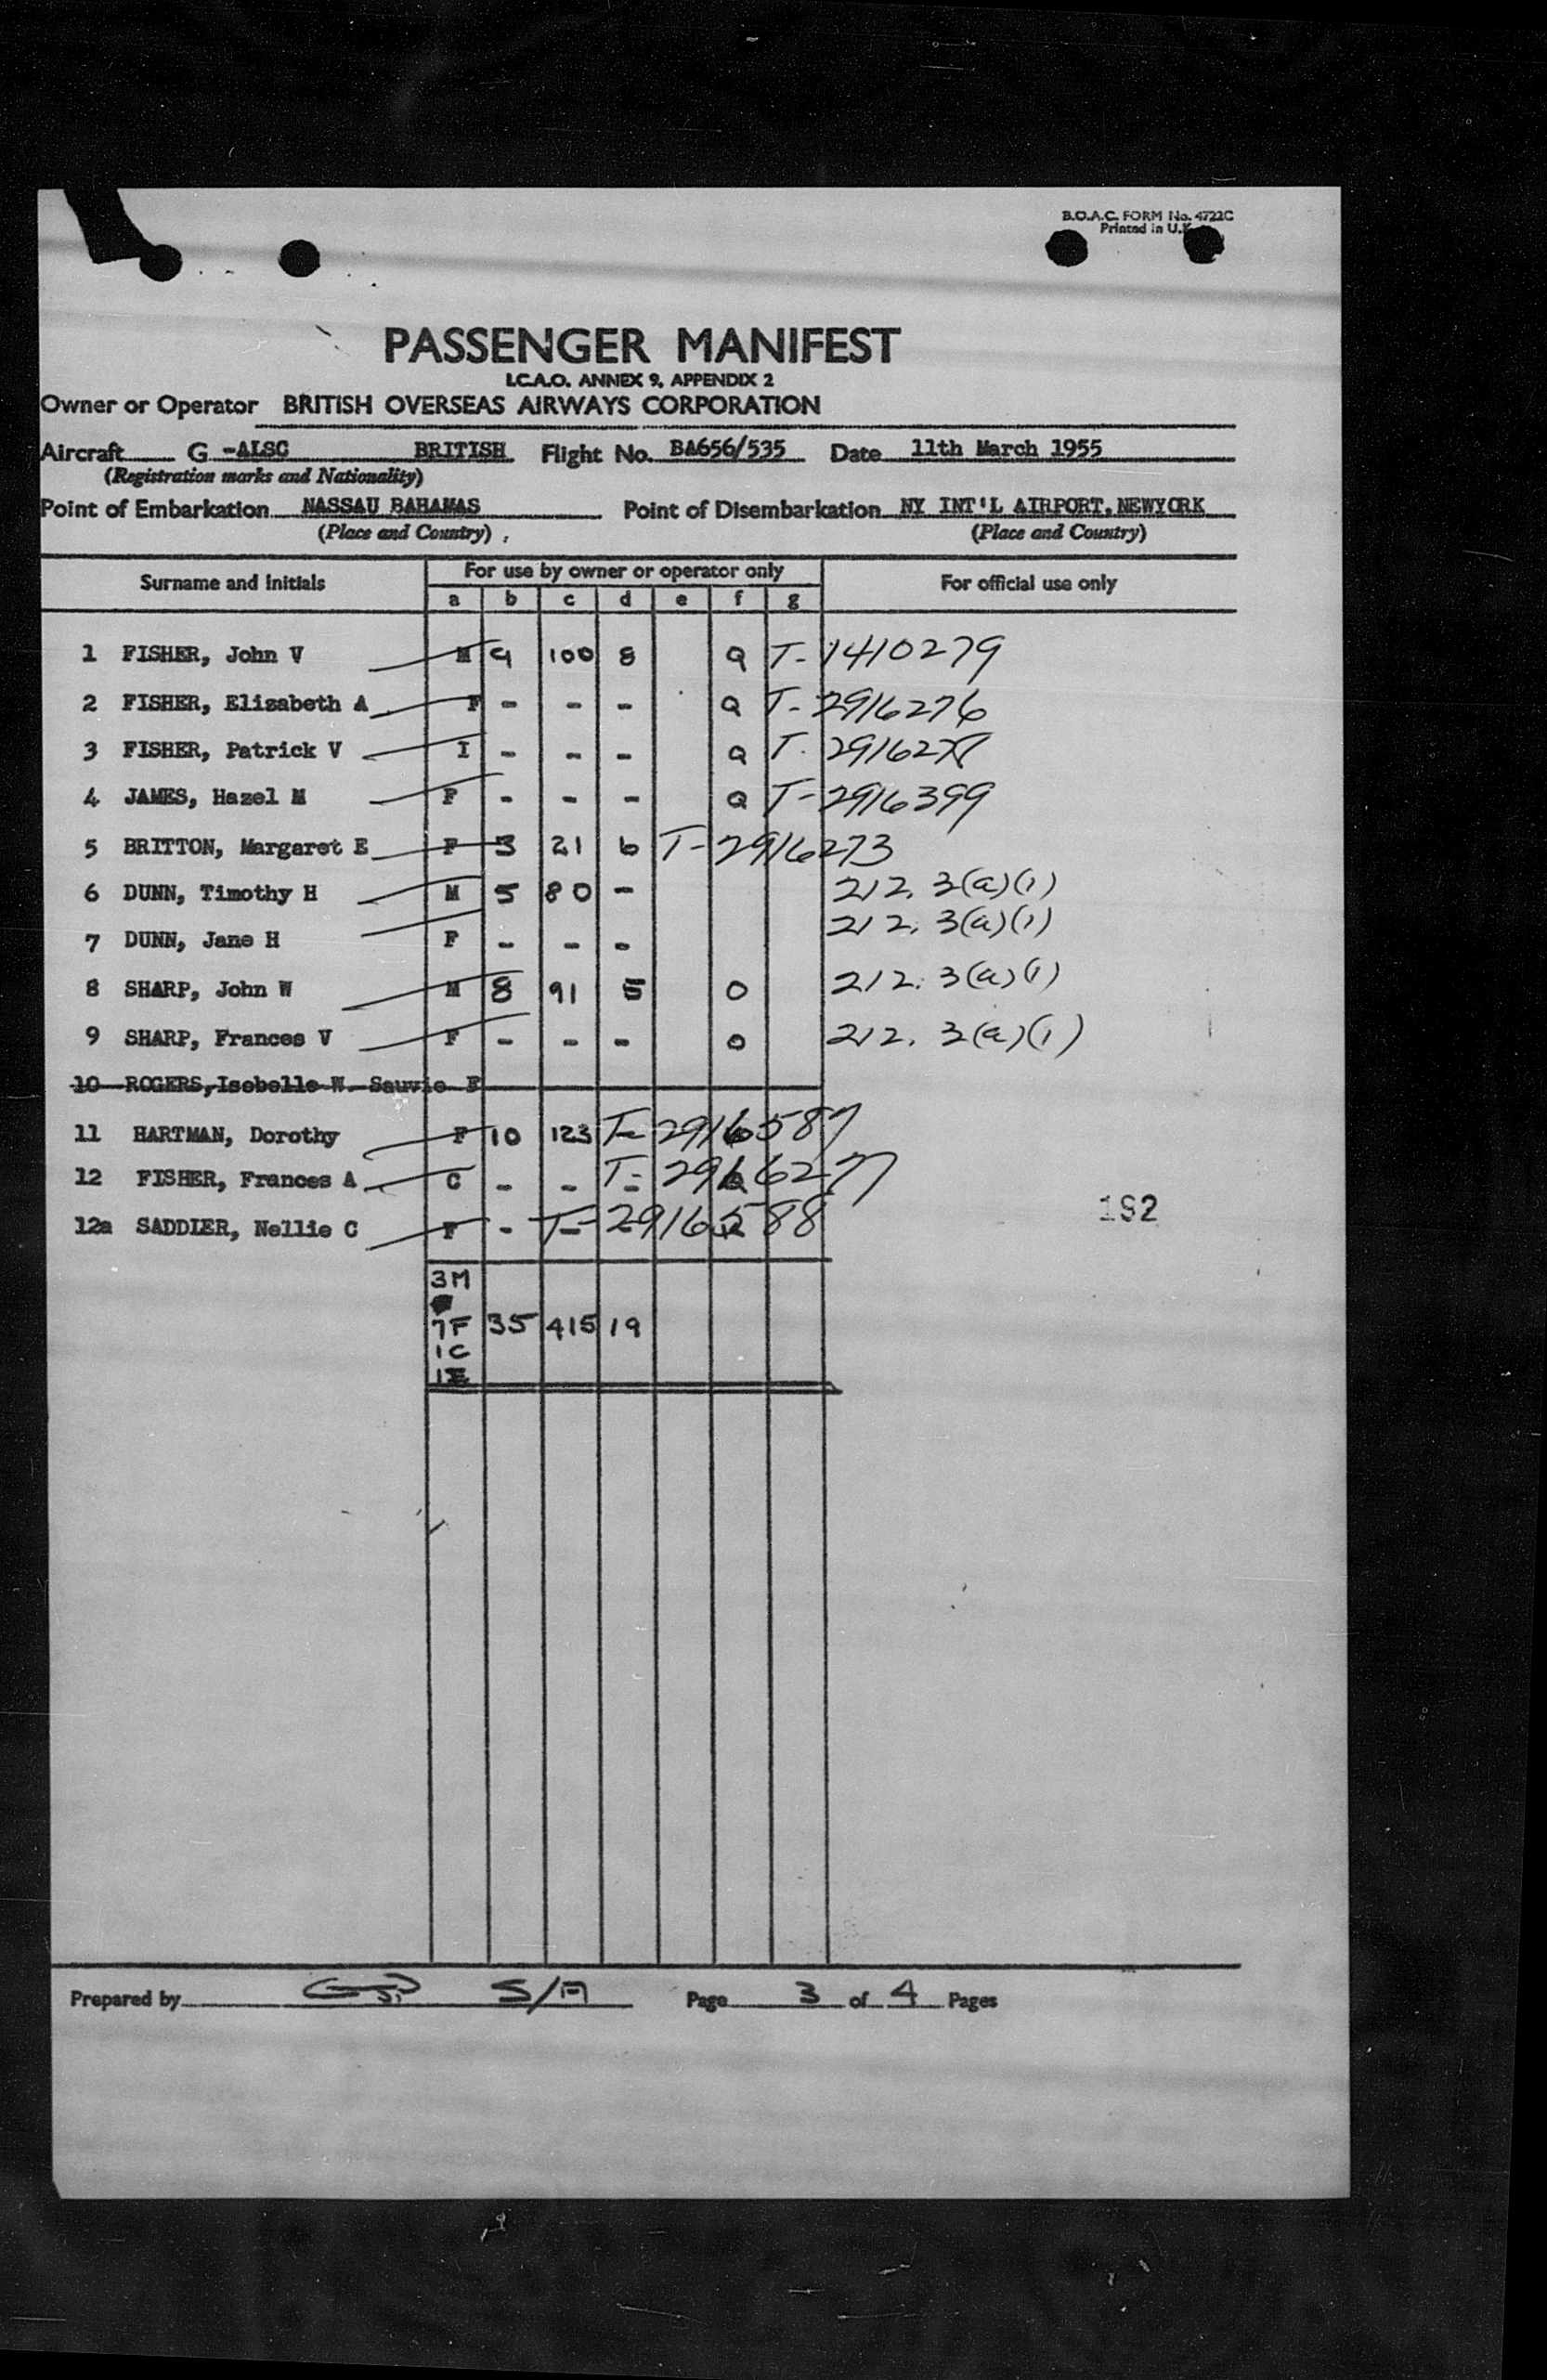 B.O.A.C. FORM No. 4722C
Printed in U.K.
PASSENGER MANIFEST
I.C.A.O. ANNEX 9, APPENDIX 2
Owner or Operator BRITISH OVERSEAS AIRWAYS CORPORATION
Aircraft G -ALSC BRITISH Flight No. BA656/535 Date 11th March 1955
(Registration marks and Nationality)
Point of Embarkation NASSAU BAHAMAS Point of Disembarkation NY INT'L AIRPORT, NEWYORK
(Place and Country) (Place and Country)
Surname and Initials For use by owner or operator only For official use only
a b c d e f g
1 FISHER, John V M 9 100 8 Q T- 1410279
2 FISHER, Elizabeth A F - - - Q T- 2916276
3 FISHER, Patrick V I - - - Q T-
4 JAMES, Hazel M F - - - Q T- 2916399
5 BRITTON, Margaret E F 3 21 6 T- 2916273
6 DUNN, Timothy H M 5 80 - 212. 3(a)(1)
7 DUNN, Jane H F - - - 212. 3(a)(1)
8 SHARP, John W M 8 91 5 O 212. 3(a)(1)
9 SHARP, Frances V F - - - O 212. 3(a)(1)
10 ROGERS, Isobelle W. Sauvie F
11 HARTMAN, Dorothy F 10 123 T- 2916587
12 FISHER, Frances A C - - - T- 2916277
12a SADDLER, Nellie C F - - - T- 2916588
192
3M
7F 35 415 19
1C
1I
Prepared by S/A Page 3 of 4 Pages